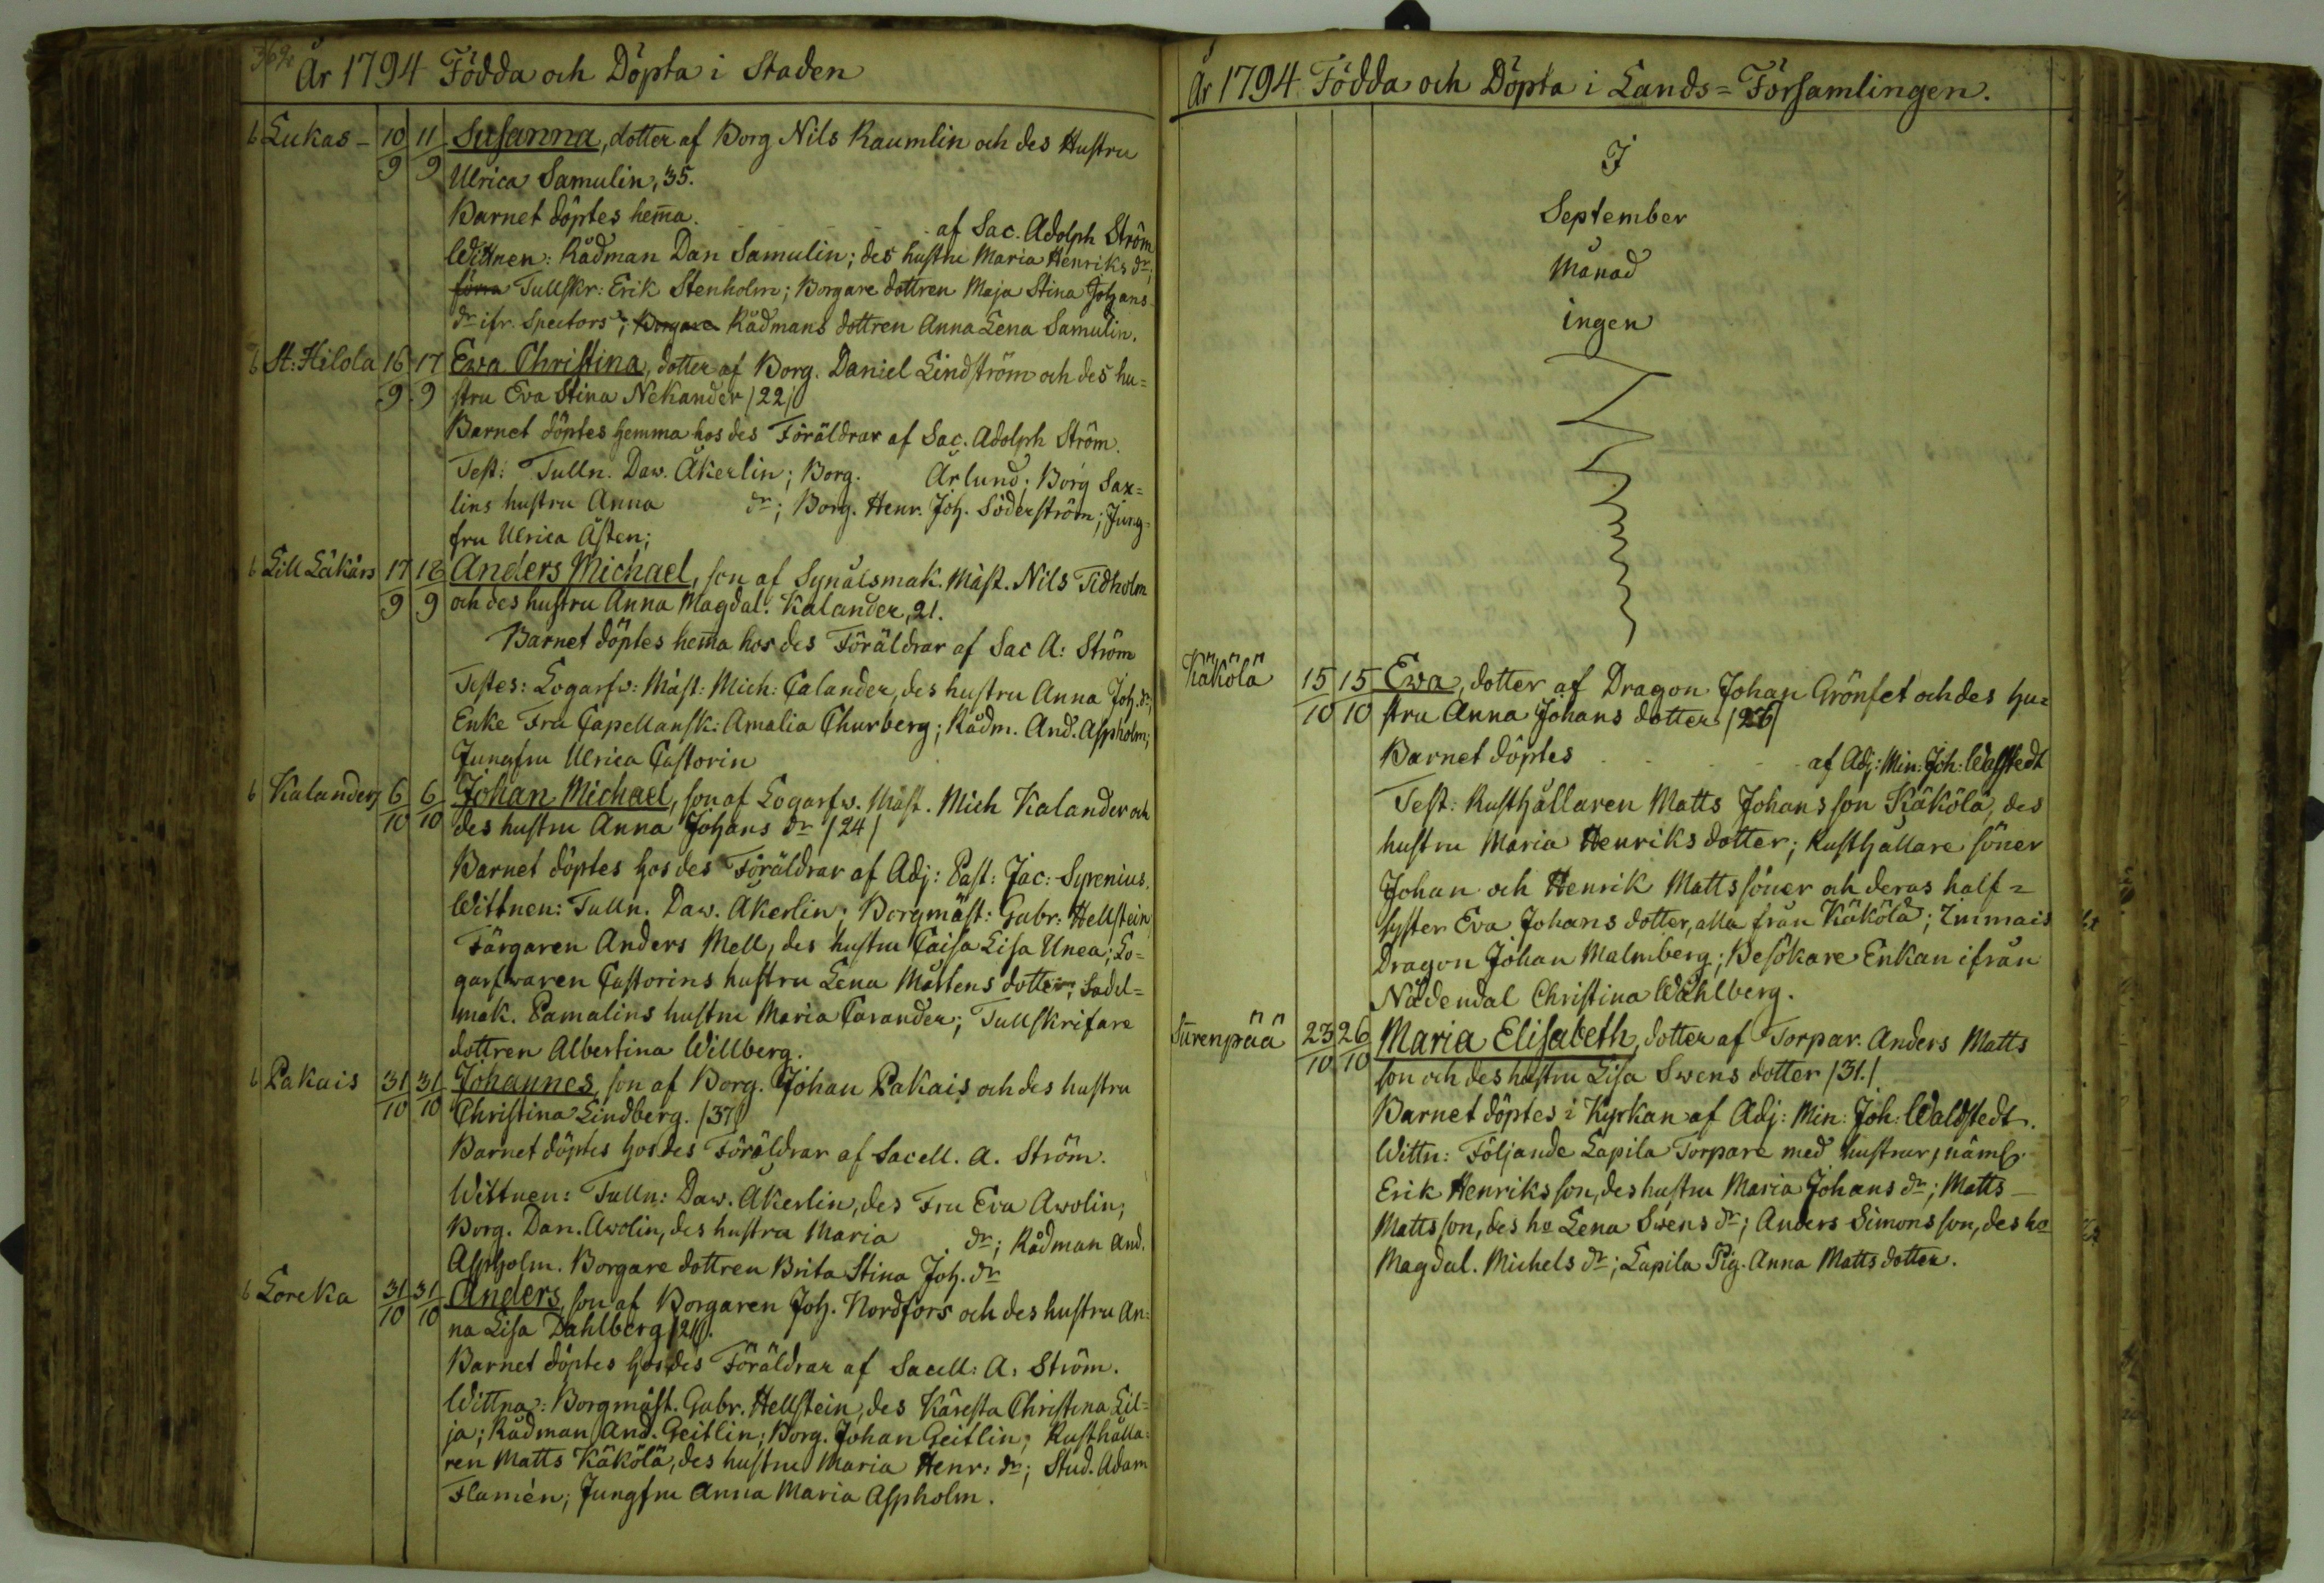 År 1794 Födda och Döpta i Staden
6 Lukas - 10/9 11/9 Susanna, dotter af Borg Nils Raumlin och des Hustru
Ulrica Samulin, 35.
Barnet döptes hem̄a. af Sac. Adolph Ström
Wittnen: Rådman Dan Samulin; des hustru Maria Henriks dr;
förra Tullskr: Erik Stenholm; Borgare dottren Maja Stina Johans
dr ifr. Spectors; Borgare Rådmans dottren Anna Lena Samulin.
6 St: Hilola 16/9 17/9 Ewa Christina, dotter af Borg. Daniel Lindström och des hu=
stru Eva Stina Nekander /22/
Barnet döptes hemma hos des Föräldrar af Sac. Adolph Ström.
Test: Tulln. Daw. Åkerlin; Borg. Årlund; Borg Sax=
lins hustru Anna dr; Borg. Henr. Joh. Söderström; Jung=
fru Ulrica Åsten;
6 Lill Läkärs 17/9 18/9 Anders Michael, son af Synålsmak. Mäst. Nils Tidholm
och des hustru Anna Magdal. Kalander, 21.
Barnet döptes hem̄a hos des Föräldrar af Sac A: Ström
Testes: Logarfw: Mäst: Mich: Calander, des hustru Anna Joh. dr;
Enke Fru Capellansk: Amalia Churberg; Rådm. And. Aspholm;
Jungfru Ulrica Castorin
6 Kalanders 6/10 6/10 Johan Michael, son af Logarfw. Mäst. Mich Kalander och
des hustru Anna Johans dr /24/
Barnet döptes hos des Föräldrar af Adj: Past: Jac: Syrenius.
Wittnen: Tulln. Daw. Åkerlin; Borgmäst: Gabr: Hellstein
Färgaren Anders Mell, des hustru Caisa Lisa Unea; Lo=
garfwaren Castorins hustru Lena Mårtens dotter; Sadel=
mak. Pamalins hustru Maria Carander; Tullskrifare
dottren Albertina Willberg.
6 Pakais 31/10 31/10 Johannes, son af Borg. Johan Pakais och des hustru
Christina Lindberg. /37/
Barnet döptes hos des Föräldrar af Sacell. A. Ström.
Wittnen: Tulln: Daw. Åkerlin, des Fru Eva Awolin;
Borg. Dan. Awolin, des hustru Maria dr; Rådman And.
Aspholm. Borgare dottren Brita Stina Joh. dr
6 Loreka 31/10 31/10 Anders, son af Borgaren Joh. Nordfors och des hustru An=
na Lisa Dahlberg /21/.
Barnet döptes hos des Föräldrar af Sacell: A. Ström.
Wittna: Borgmäst. Gabr. Hellstein, des Käresta Christina Lil=
ja; Rådman And. Geitlin; Borg. Johan Geitlin; Rusthålla=
ren Matts Käkölä, des hustru Maria Henr: dr; Stud. Adam
Flamén; Jungfru Anna Maria Aspholm.
År 1794 Födda och Döpta i Lands=Församlingen.
I
September
Månad
ingen
Käkölä 15/10 15/10 Ewa, dotter af Dragon Johan Grönfet och des hu=
stru Anna Johans dotter /26/
Barnet döptes af Adj: Min: Joh: Walstedt
Test: Rusthållaren Matts Johansson Käkölä, des
hustru Maria Henriksdotter; Rusthållare söner
Johan och Henrik Mattssöner och deras half=
syster Eva Johans dotter, alla från Käkölä; Immais
Dragon Johan Malmberg; Besökare Enkan ifrån
Nådendal Christina Wahlberg.
Surenpää 23/10 26/10 Maria Elisabeth, dotter af Torpar. Anders Matts
son och des hustru Lisa Swens dotter /31./
Barnet döptes i Kyrkan af Adj: Min: Joh: Waldstedt.
Wittn: Följande Lapila Torpare med hustrur, näml.
Erik Henriksson, des hustru Maria Johans dr; Matts
Mattsson, des ho Lena Swens dr; Anders Simonsson, des ho
Magdal. Michels dr; Lapila Pig. Anna Matts dotter.